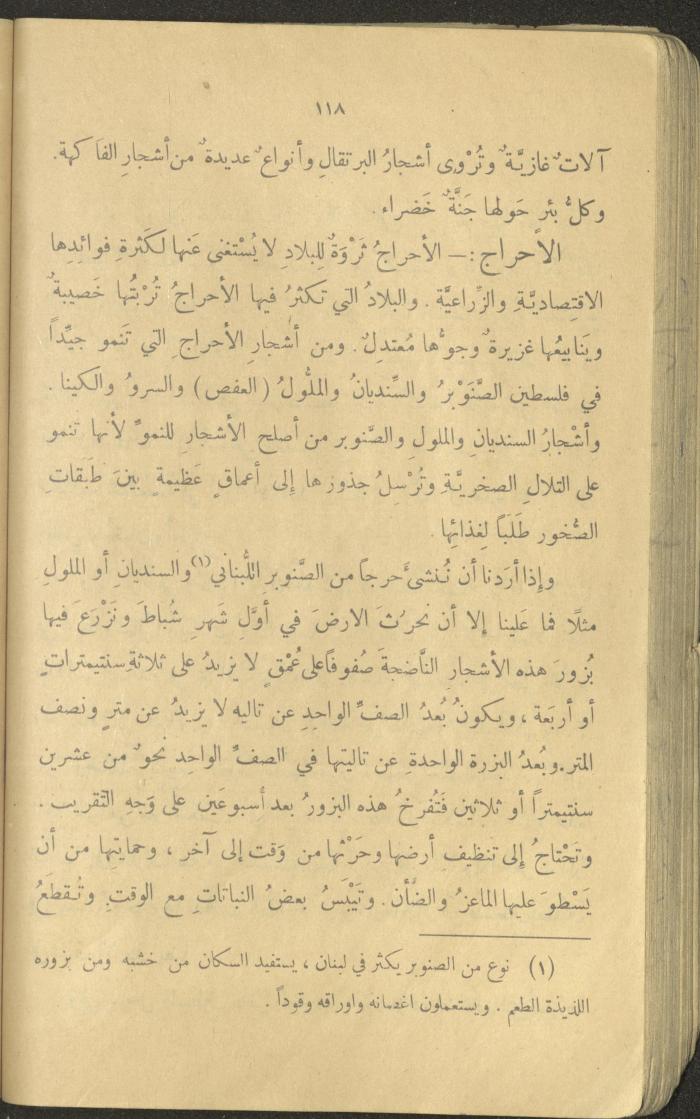 ١١٨
آلاتٌ غازيَّةٌ وتُرْوى أشجارُ البرتقالِ وأنواعٌ عديدةٌ من أشجارِ الفاكهة.
وكلُّ بئرٍ حَولها جَنَّةٌ خَضراء.
الأحراج :— الأحراجُ ثَرْوَةٌ لِلبلادِ لا يُسْتغنى عَنها لكَثرةِ فوائدِها
الاقتِصاديَّةِ والزِّراعيَّة . والبلادُ التي تَكثرُ فيها الأحراجُ تُرْبتُها خَصيبةٌ
ويَنابيعُها غزيرةٌ وجوُّها مُعتدِلٌ. ومن أشجارِ الأحراجِ التي تَنمو جيِّداً
في فلسطين الصَّنَوْبرُ والسِّنديانُ والملُّولُ (العفص) والسروُ والكينا .
وأشْجارُ السنديانِ والملولِ والصَّنوبر من أصلح الأشجارِ للنموِّ لأنها تنمو
على التلالِ الصخريَّةِ وتُرْسِلُ جذورها إلى أعماقٍ عَظيمةٍ بينَ طَبَقاتِ
الصُّخور طَلَباً لِغذائِها .
وإذا أردنا أن نُنشئَ حرجاً من الصَّنوبرِ اللُّبناني(١) والسنديانِ أو الملولِ
مثلًا فما عَلينا إلا أن نَحرُثَ الارضَ في أوَّلِ شَهرِ شُباطَ ونَزْرَعَ فيها
بُزورَ هذه الأشجارِ النَّاضجةَ صُفوفاً على عُمْقٍ لا يزيدُ على ثلاثةِ سنتيمتراتٍ
أو أربَعة ، ويكونُ بُعدُ الصفِّ الواحدِ عن تاليه لا يزيدُ عن مترٍ ونصف
المتر. وبُعدُ البزرة الواحدةِ عن تاليتها في الصفِّ الواحد نحوٌ من عشرين
سنتيمتراً أو ثلاثين فَتُفرخُ هذه البزورُ بعد أسبوعَين على وَجهِ التَّقريب .
وتَحْتاجُ إلى تنظيفِ أرضها وحَرْثها من وَقت إلى آخر ، وحمايتها من أن
يَسْطوَ عليها الماعزُ والضَّأن. وتَيْبَسُ بعضُ النباتاتِ مع الوقتِ وتُقطَعُ
(١) نوع من الصنوبر يكثر في لبنان ، يستفيد السكان من خشبه ومن بزوره
اللذيذة الطعم . ويستعملون اغصانه واوراقه وقوداً .